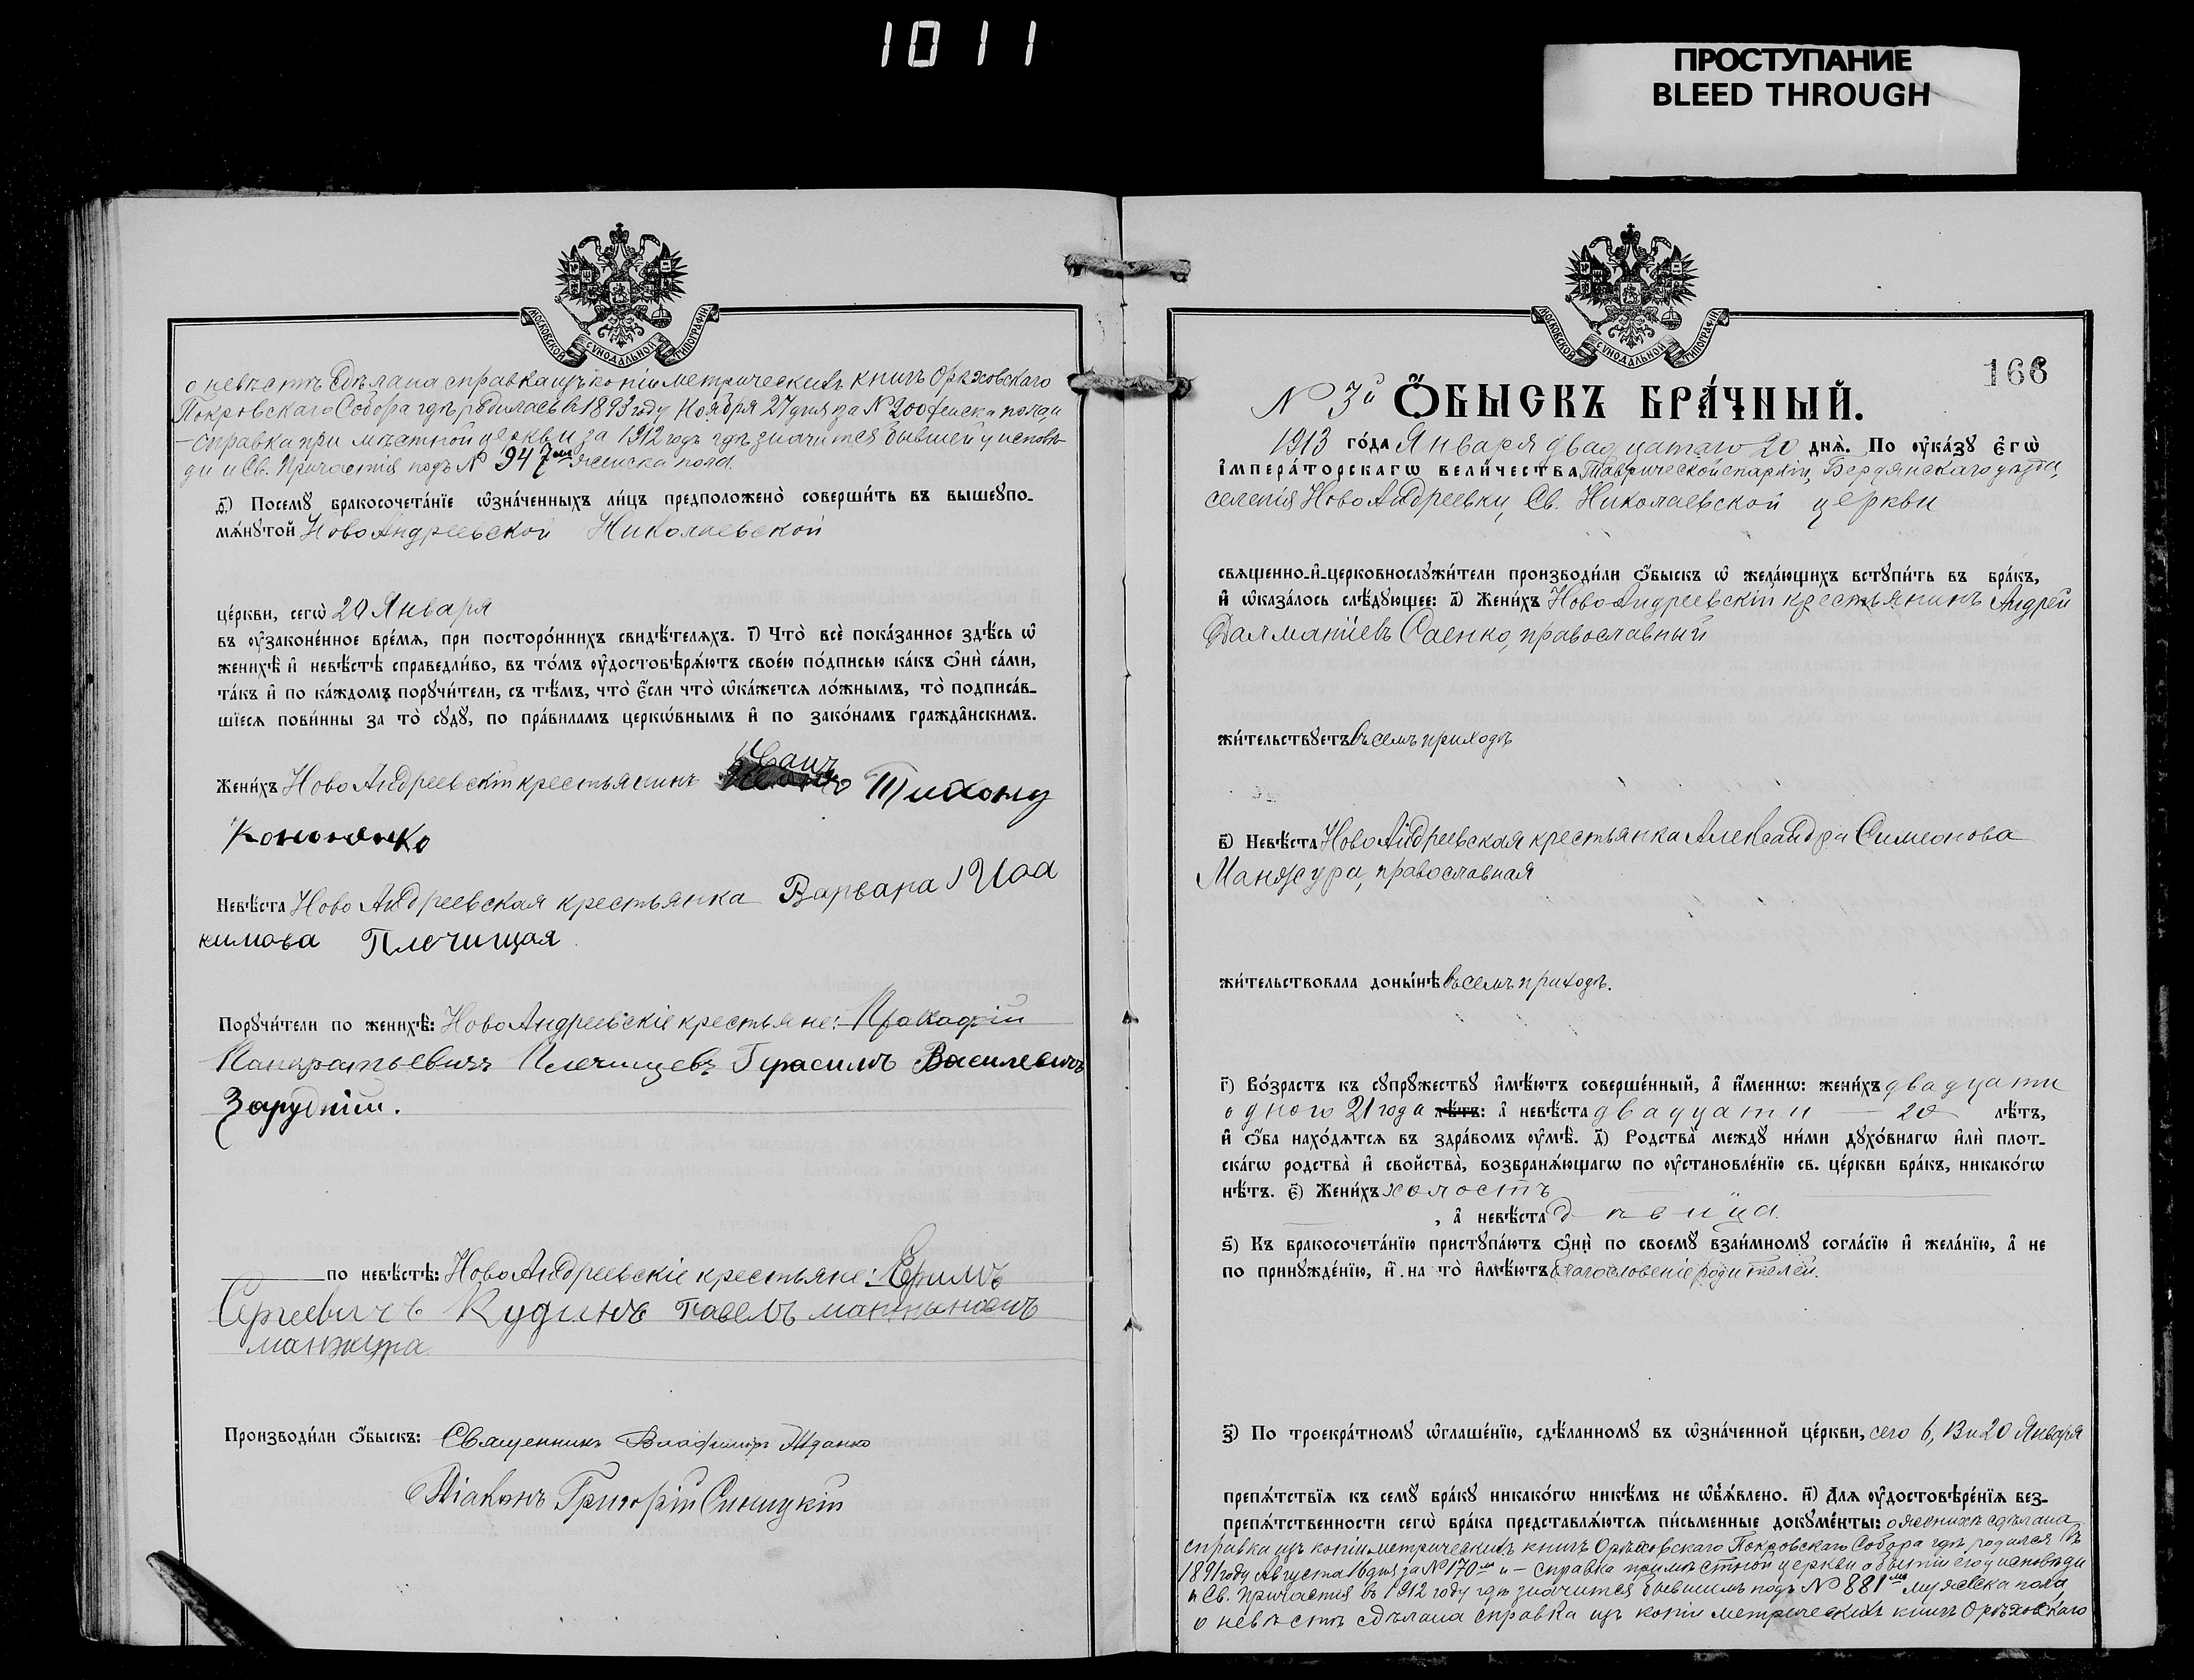 1011
ПРОСТУПАНИЕ
BLEED THROUGH
МОСКОВСКОЙ СѴНОДАЛЬНОЙ ТИПОГРАФІИ
о невѣстѣ сдѣлана справка изъ копіи метрическихъ книгъ Орѣховскаго
Покровскаго Собора гдѣ родилась въ 1893 году Ноября 27 дня за № 200 женска пола, и
– справка при мѣстной церкви за 1912 годъ гдѣ значится бывшей у исповѣ-
ди и Св. Причастія подъ № 947мъ женска пола.
д҃) Посемꙋ бракосочета́нїе ѡ҆зна́ченныхъ ли́цъ предположено̀ соверши́ть въ вышеꙋпо-
мѧ́нꙋтой НовоАндреевской Николаевской
це́ркви, сегѡ̀ 20 Января
въ ѹ҆законе́нное вре́мѧ, при посторо́ннихъ свидѣ́телѧхъ. і҃) Что̀ всѐ пока́занное здѣ́сь ѡ҆
женихѣ̀ и҆ невѣ́стѣ справедли́во, въ то́мъ ѹ҆достовѣрѧ́ютъ свое́ю по́дписью ка́къ ѻ҆нѝ са́ми,
та́къ и҆ по ка́ждомъ порꙋчи́тели, съ тѣ́мъ, что̀ є҆́сли что̀ ѡ҆ка́жетсѧ ло́жнымъ, то̀ подписа́в-
шїесѧ пови́нны за то̀ сꙋдꙋ̀, по пра́виламъ церко́внымъ и҆ по зако́намъ гражда́нскимъ.
Жени́хъ НовоАндреевскій крестьянинъ Иванъ Тихону
Кононенко
Невѣ́ста НовоАндреевская крестьянка Варвара Иоа
кимова Плечищая
Порꙋчи́тели по женихѣ̀: НовоАндреевскіе крестьяне: Прокофій
Панкратьевичъ Плечищевъ Герасимъ Василевичъ
Зарудній.
по невѣ́стѣ: НовоАндреевскіе крестьяне: Ефимъ
Сергіевичъ Кудинъ Павелъ
манжура
Производи́ли ѻ҆́быскъ: Священникъ Владиміръ
Діаконъ Григорій Синицкій
МОСКОВСКОЙ СѴНОДАЛЬНОЙ ТИПОГРАФІИ
166
№ 3й Ѻ҆́БЫСКЪ БРА́ЧНЫЙ.
1913 го́да Января двадцатаго 20 днѧ̀. По ѹ҆ка́зꙋ Є҆гѡ̀
І҆мпера́торскагѡ вели́чества, Таврической епархіи, Бердянскаго уѣзда,
селенія НовоАндреевки, Св. Николаевской церкви
свѧщенно-и҆-церковнослꙋжи́тели производи́ли ѻ҆́быскъ ѡ҆ жела́ющихъ встꙋпи́ть въ бра́къ,
и҆ ѡ҆каза́лось слѣ́дꙋющее: а҃) Жени́хъ НовоАндреевскій крестьянинъ Андрей
Далматіевъ Саенко, православный
жи́тельствꙋетъ въ семъ приходѣ
в҃) Невѣ́ста НовоАндреевская крестьянка Александра Симеонова
Манжура, православная
жи́тельствовала доны́нѣ въ семъ приходѣ.
г҃) Во́зрастъ къ сꙋпрꙋ́жествꙋ и҆мѣ́ютъ соверше́нный, а҆ и҆́меннѡ: жени́хъ двадцати
одного 21 года лѣ́тъ: а҆ невѣ́ста двадцати – 20 лѣ́тъ,
и҆ ѻ҆́ба нахо́дѧтсѧ въ здра́вомъ ѹ҆мѣ̀. д҃) Родства̀ междꙋ ни́ми дꙋхо́внагѡ и҆лѝ плот-
ска́гѡ родства̀ и҆ свойства̀, возбранѧ́ющагѡ по ѹ҆становле́нїю св. це́ркви бра́къ, никако́гѡ
нѣ́тъ. є҃) Жени́хъ холостъ
, а҆ невѣ́ста дѣвица.
ѕ҃) Къ бракосочета́нїю пристꙋпа́ютъ ѻ҆нѝ по своемꙋ взаи́мномꙋ согла́сїю и҆ жела́нїю, а҆ не
по принꙋжде́нїю, и҆ на то̀ и҆мѣ́ютъ благословеніе родителей.
з҃) По троекра́тномꙋ ѡ҆глаше́нїю, сдѣ́ланномꙋ въ ѡ҆зна́ченной це́ркви, сего 6, 13 и 20 Января
препѧ́тствїѧ къ семꙋ бра́кꙋ никако́гѡ никѣ́мъ не ѡ҆бъѧ́влено. и҃) Длѧ ѹ҆достовѣре́нїѧ без-
препѧ́тственности сегѡ̀ бра́ка представлѧ́ютсѧ пи́сьменные докꙋме́нты: о женихѣ сдѣлана
справка изъ копіи метрическихъ книгъ Орѣховскаго Покровскаго Собора гдѣ родился въ
1891 году Августа 16 дня за № 170мъ и – справка при мѣстной церкви о бытіи его у исповѣди
и Св. Причастія въ 1912 году гдѣ значится бывшимъ подъ № 881мъ мужеска пола
о невѣстѣ сдѣлана справка изъ копіи метрическихъ книгъ Орѣховскаго